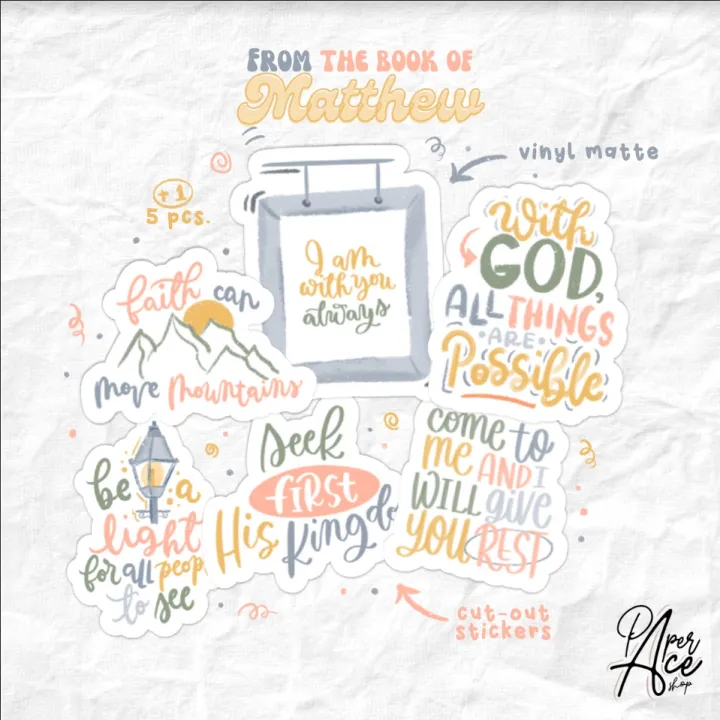 FROM THE BOOK OF
Matthew
vinyl matte
+1
5 pcs.
I am
with you
always
With
GOD,
ALL THINGS
ARE
Possible
faith can
move mountains
be a
light
for all peop
to see
Seek
first
His Kingdo
come to
me AND I
WILL give
you REST
cut-out
stickers
PAper
Ace
shop